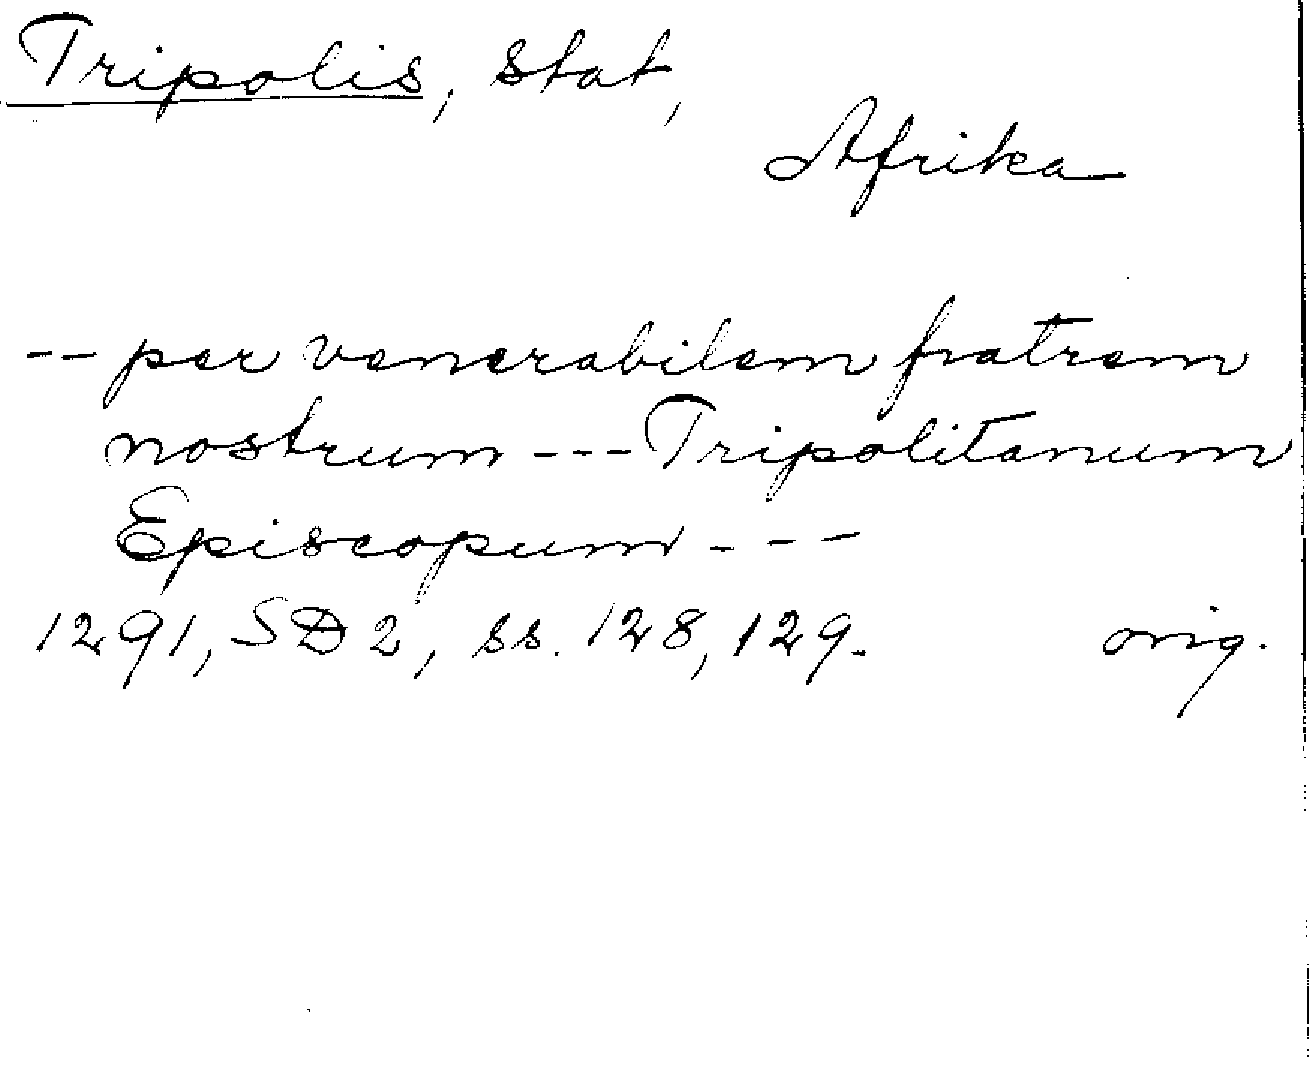 Tripolis, stat,
Afrika
-- per venerabilem fratrem
nostrum --- Tripolitanum
Episcopum ---
1291, SD 2, ss. 128, 129. orig.